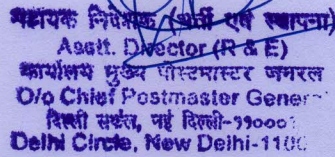 सहायक निदेशक (भर्ती एवं स्थापना)
Asstt. Director (R & E)
कार्यालय मुख्य पोस्टमास्टर जनरल
O/o Chief Postmaster Gener
दिल्ली सर्कल, नई दिल्ली-११०००
Delhi Circle, New Delhi-110